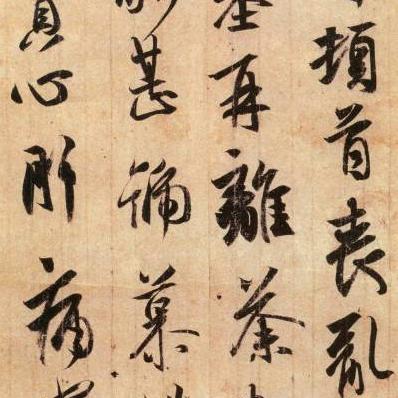 頓首喪亂
墓再離荼
甚號慕
心肝痛